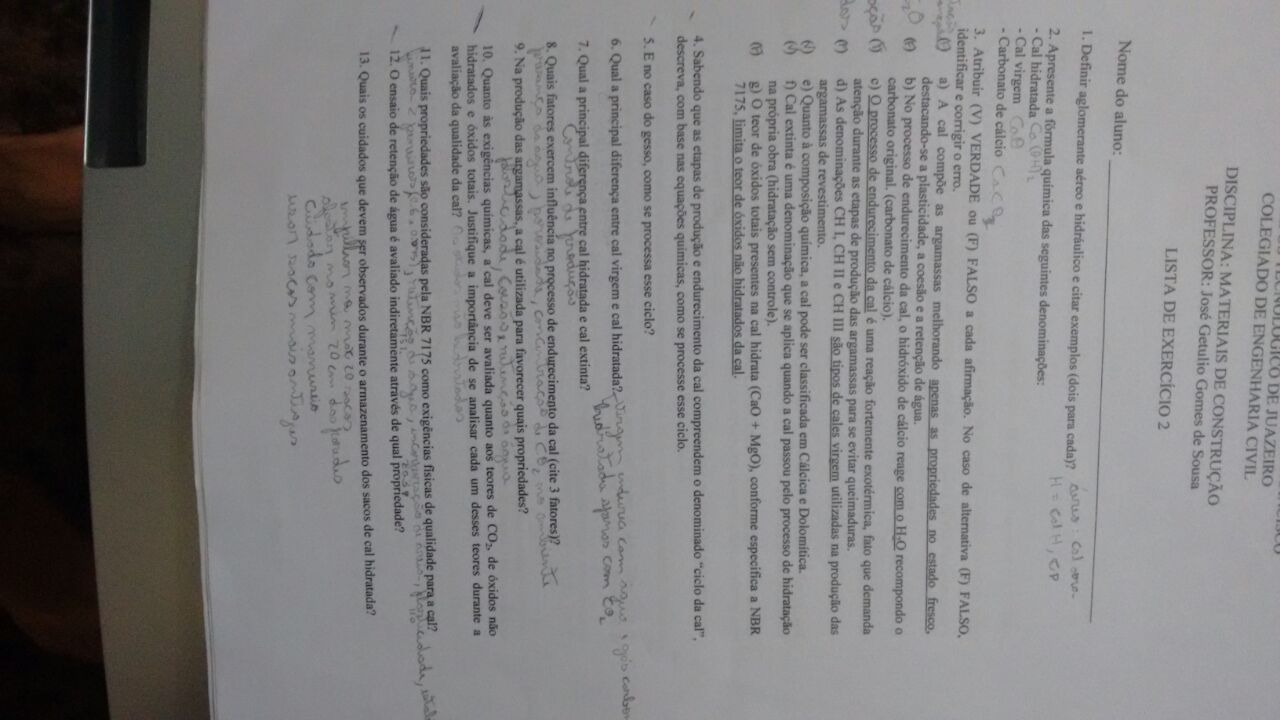 COLEGIADO DE ENGENHARIA CIVIL
DISCIPLINA: MATERIAIS DE CONSTRUÇÃO
PROFESSOR: José Getulio Gomes de Sousa
LISTA DE EXERCÍCIO 2
Nome do aluno:
1. Definir aglomerante aéreo e hidráulico e citar exemplos (dois para cada)?
H = cal H, CP
2. Apresente a fórmula química das seguintes denominações:
- Cal hidratada Ca(OH)2
- Cal virgem CaO
- Carbonato de cálcio CaCO3
3. Atribuir (V) VERDADE ou (F) FALSO a cada afirmação. No caso de alternativa (F) FALSO,
identificar e corrigir o erro.
a) A cal compõe as argamassas melhorando apenas as propriedades no estado fresco,
destacando-se a plasticidade, a coesão e a retenção de água.
b) No processo de endurecimento da cal, o hidróxido de cálcio reage com o H2O recompondo o
carbonato original. (carbonato de cálcio).
c) O processo de endurecimento da cal é uma reação fortemente exotérmica, fato que demanda
atenção durante as etapas de produção das argamassas para se evitar queimaduras.
d) As denominações CH I, CH II e CH III são tipos de cales virgem utilizadas na produção das
argamassas de revestimento.
e) Quanto à composição química, a cal pode ser classificada em Cálcica e Dolomítica.
f) Cal extinta é uma denominação que se aplica quando a cal passou pelo processo de hidratação
na própria obra (hidratação sem controle).
g) O teor de óxidos totais presentes na cal hidrata (CaO + MgO), conforme especifica a NBR
7175, limita o teor de óxidos não hidratados da cal.
4. Sabendo que as etapas de produção e endurecimento da cal compreendem o denominado “ciclo da cal”,
descreva, com base nas equações químicas, como se processe esse ciclo.
5. E no caso do gesso, como se processa esse ciclo?
6. Qual a principal diferença entre cal virgem e cal hidratada? Virgem endurece com água e gás
hidratada apenas com CO2
7. Qual a principal diferença entre cal hidratada e cal extinta?
Controle de produção
8. Quais fatores exercem influência no processo de endurecimento da cal (cite 3 fatores)?
presença de água, porosidade, concentração de CO2 no ambiente
9. Na produção das argamassas, a cal é utilizada para favorecer quais propriedades?
plasticidade, coesão e retenção de água
10. Quanto às exigências químicas, a cal deve ser avaliada quanto aos teores de CO2, de óxidos não
hidratados e óxidos totais. Justifique a importância de se analisar cada um desses teores durante a
avaliação da qualidade da cal?
11. Quais propriedades são consideradas pela NBR 7175 como exigências físicas de qualidade para a cal?
retenção de água, incorporação de areia, plasticidade,
12. O ensaio de retenção de água é avaliado indiretamente através de qual propriedade?
13. Quais os cuidados que devem ser observados durante o armazenamento dos sacos de cal hidratada?
empilhar no max 20 sacos
no min 20 cm das paredes
Cuidado com manuseio
usar sacos mais antigos